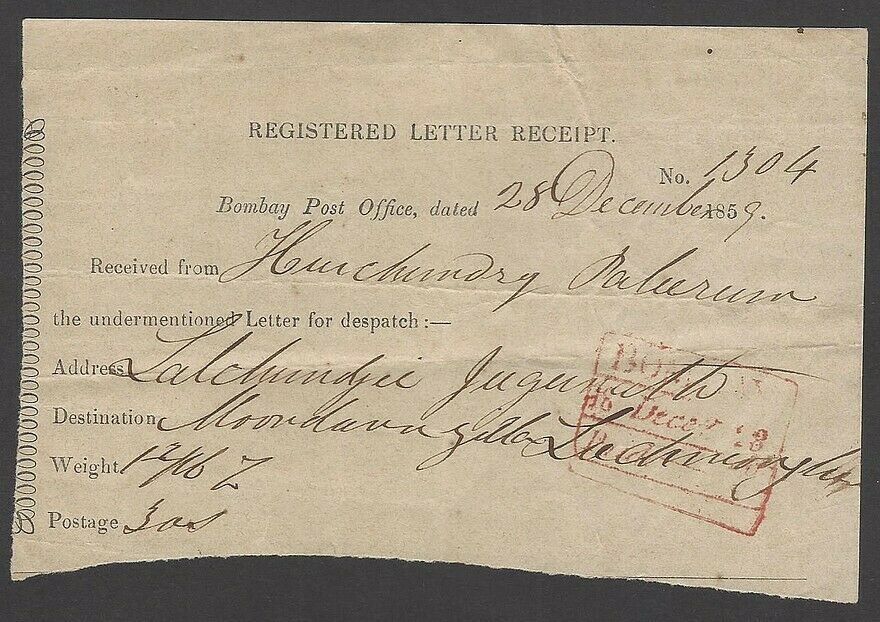 REGISTERED LETTER RECEIPT.
No. 1304
Bombay Post Office, dated 28 December 1859.
Received from Hurchundry
the undermentioned Letter for despatch :—
Address Lalchundjee Jugernath
Destination
Weight
Postage 3 as
BOMBAY
Decer